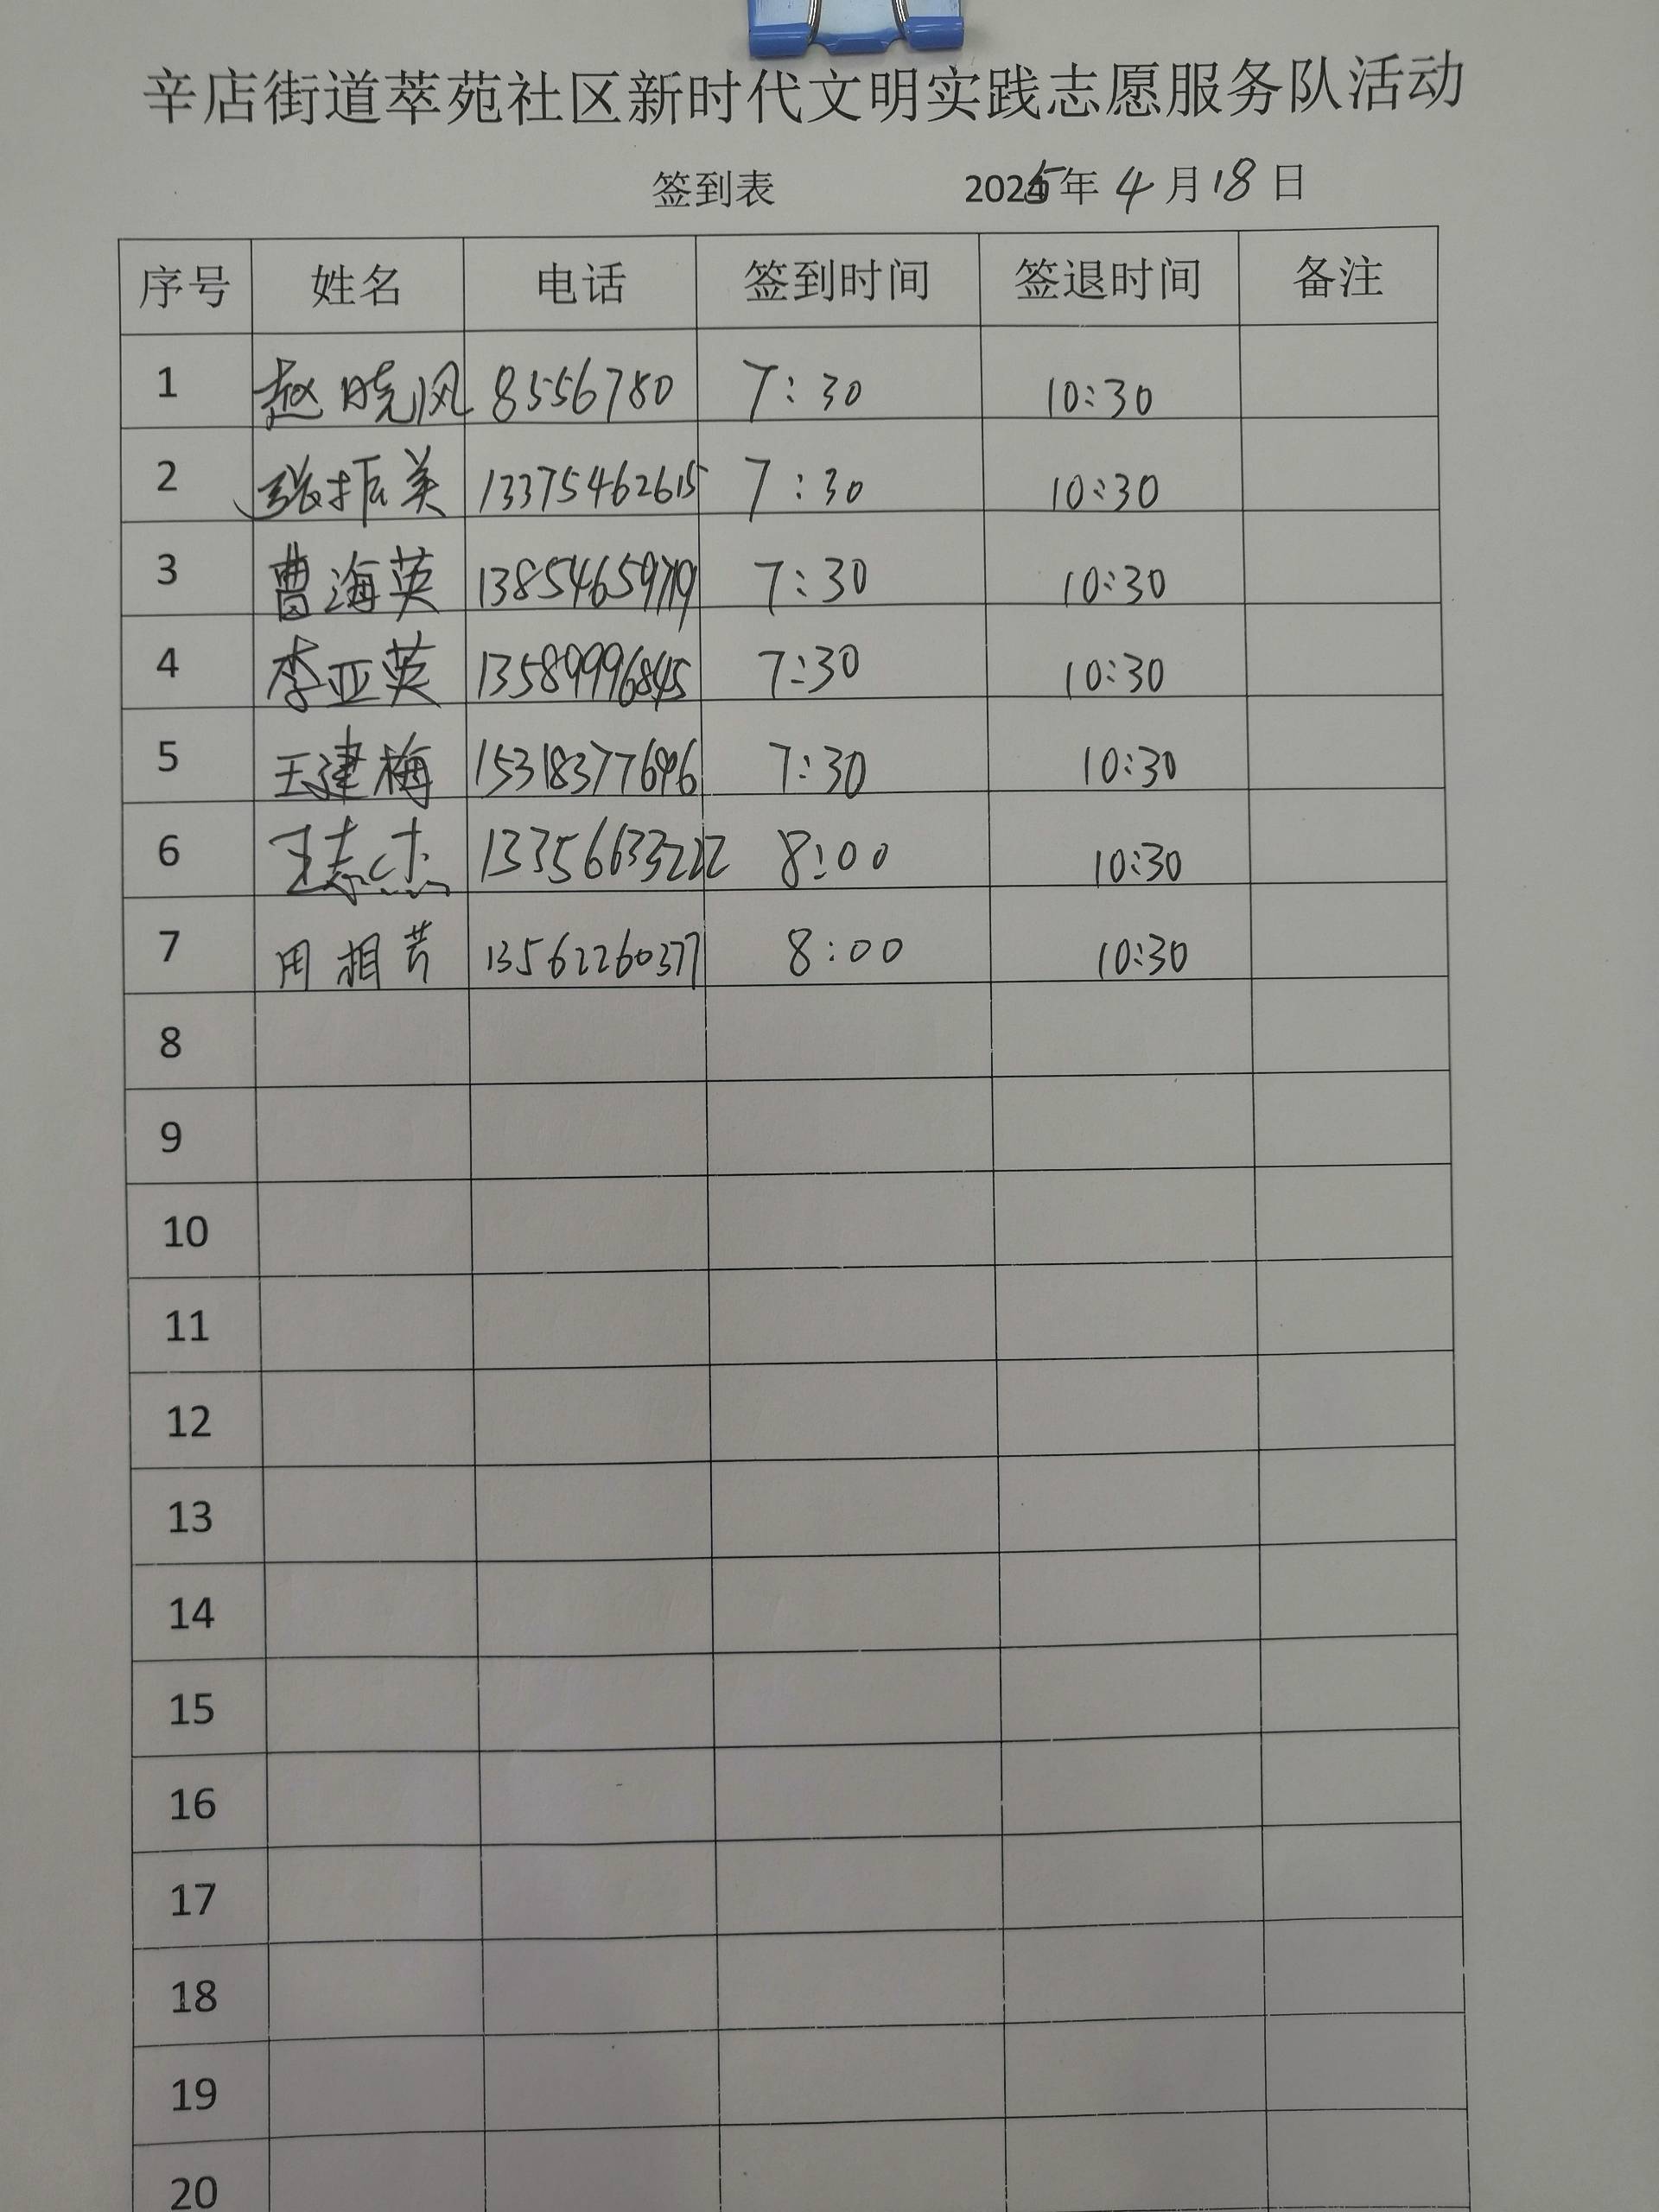 辛店街道萃苑社区新时代文明实践志愿服务队活动
签到表 2025年4月18日
序号 姓名 电话 签到时间 签退时间 备注
1 赵晓风 8556780 7:30 10:30
2 张振美 13375462615 7:30 10:30
3 曹海英 13854659719 7:30 10:30
4 李亚英 13589996845 7:30 10:30
5 王建梅 15318377696 7:30 10:30
6 王志杰 13356633222 8:00 10:30
7 周相芳 13562260377 8:00 10:30
8
9
10
11
12
13
14
15
16
17
18
19
20